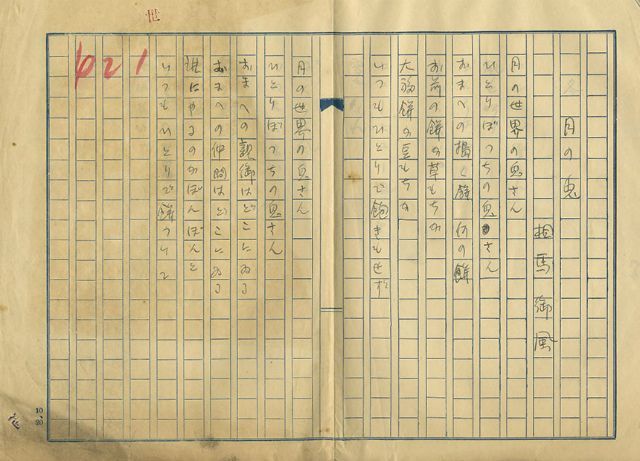 月の兎
相馬御風
月の世界の兎さん
ひとりぼっちの兎さん
おまへの搗く餅 何の餅
お前の餅か草もちか
大福餅か豆もちか
いつもひとりで飽きもせず
月の世界の兎さん
ひとりぼっちの兎さん
おまへの親御はどこにゐる
おまへの仲間はどこにゐる
誰にやるのかぽんぽんと
いつもひとりで餅ついて
10.20